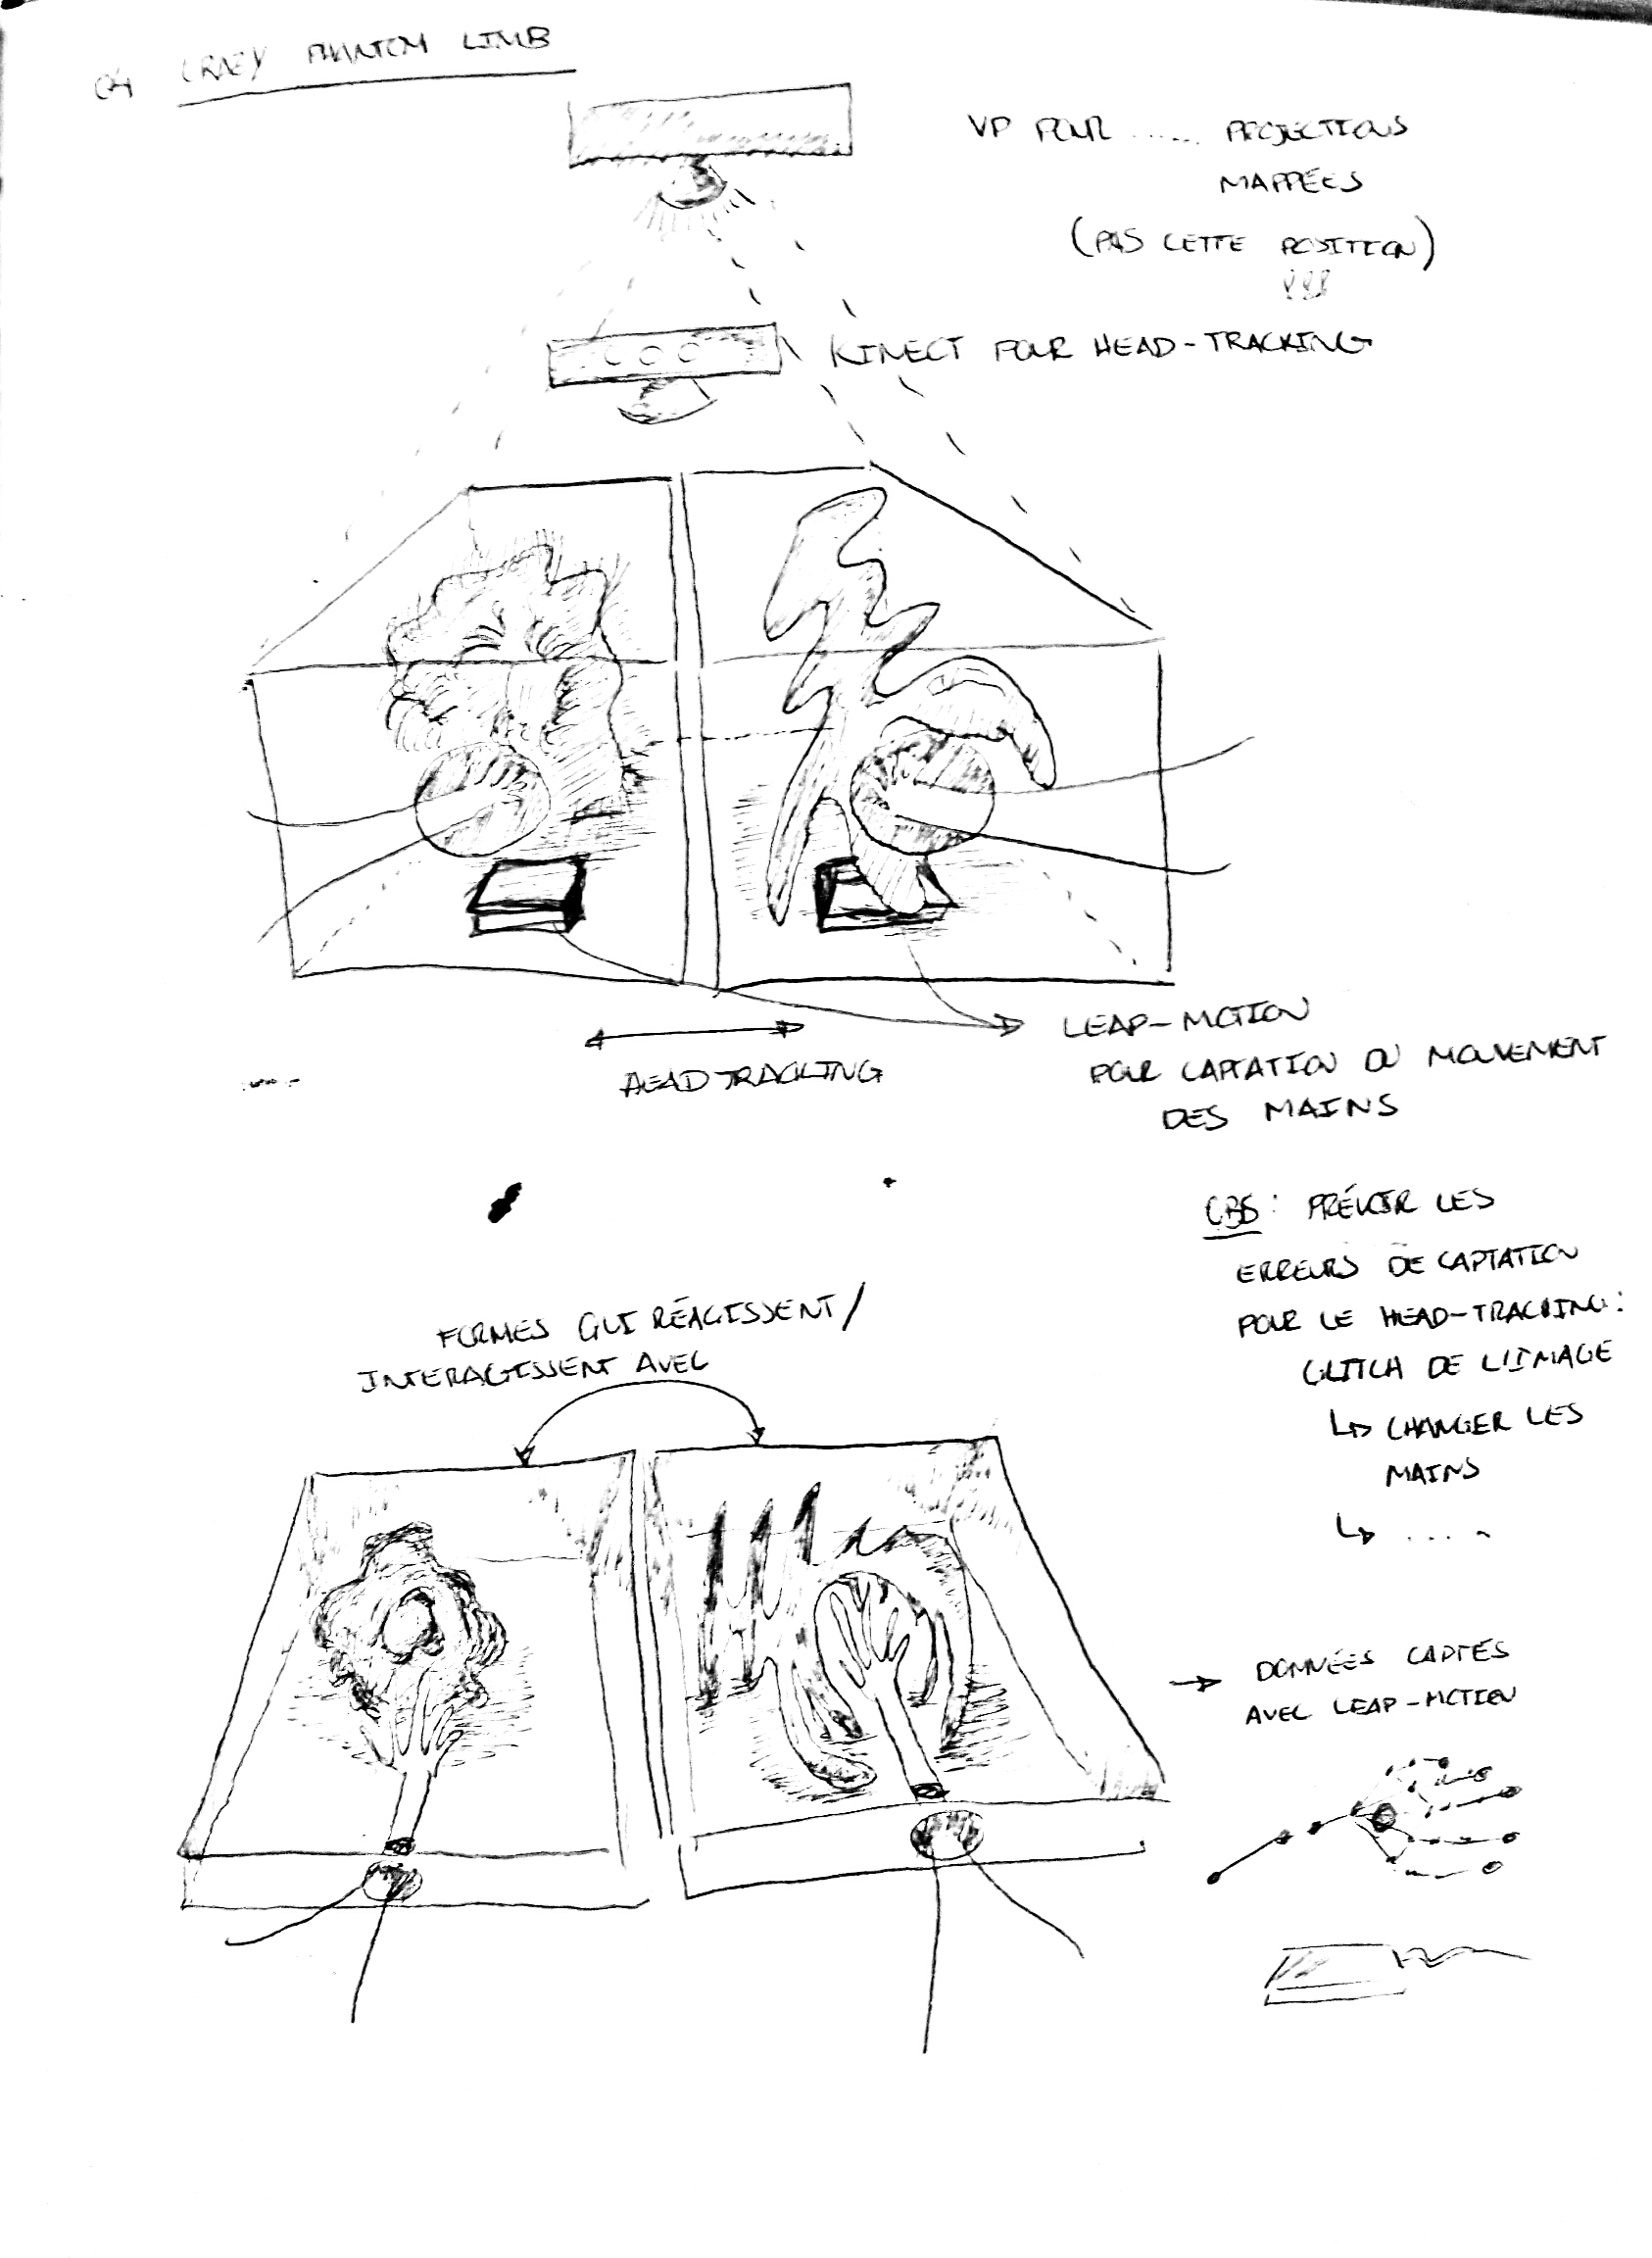 04 CRAZY PHANTOM LIMB
VP POUR ..... PROJECTIONS
MAPPÉES
(PAS CETTE POSITION)
!!!
KINECT POUR HEAD-TRACKING
HEAD TRACKING
LEAP-MOTION
POUR CAPTATION DU MOUVEMENT
DES MAINS
OBS : PRÉVOIR LES
ERREURS DE CAPTATION
POUR LE HEAD-TRACKING :
GLITCH DE L'IMAGE
↳ CHANGER LES
MAINS
↳ .....
FORMES QUI RÉAGISSENT/
INTERAGISSENT AVEC
→ DONNÉES CAPTÉS
AVEC LEAP-MOTION